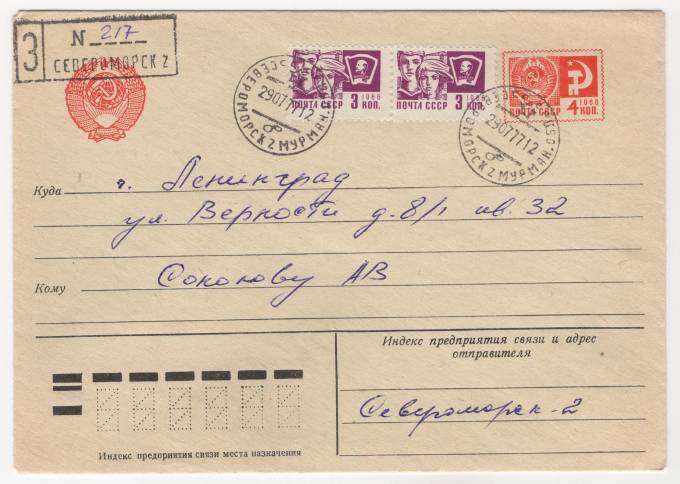 З
N 217
СЕВЕРОМОРСК 2
ПОЧТА СССР 3 КОП. 1966
ПОЧТА СССР 3 КОП. 1966
ПОЧТА СССР 4 КОП. 1966
СЕВЕРОМОРСК 2 МУРМАН. ОБЛ.
29077712
СЕВЕРОМОРСК 2 МУРМАН. ОБЛ.
29077712
Куда г. Ленинград
ул. Верности д. 8/1 кв. 32
Кому Соколову АВ
Индекс предприятия связи и адрес
отправителя
Североморск-2
Индекс предприятия связи места назначения